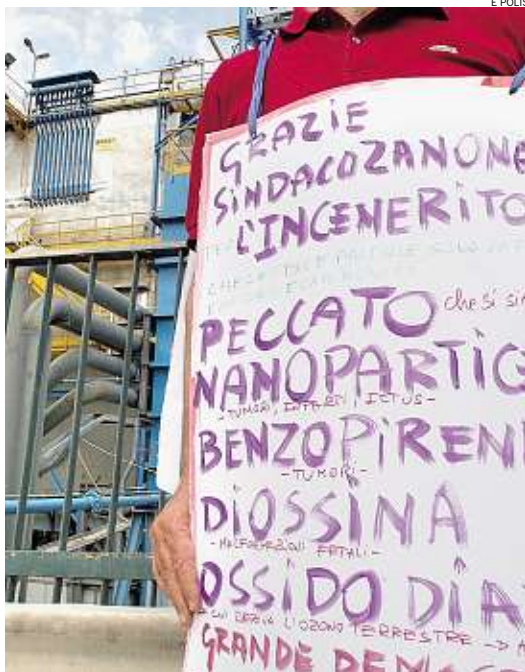 E POLIS
GRAZIE
SINDACO ZANONA
L'INCENERITO
PECCATO che si si
NANOPARTIC
- TUMORI, INFARTI, ICTUS -
BENZOPIRENI
- TUMORI -
DIOSSINA
- MALFORMAZIONI FETALI -
OSSIDO DI A
L'OZONO TERRESTRE
GRANDE DEM